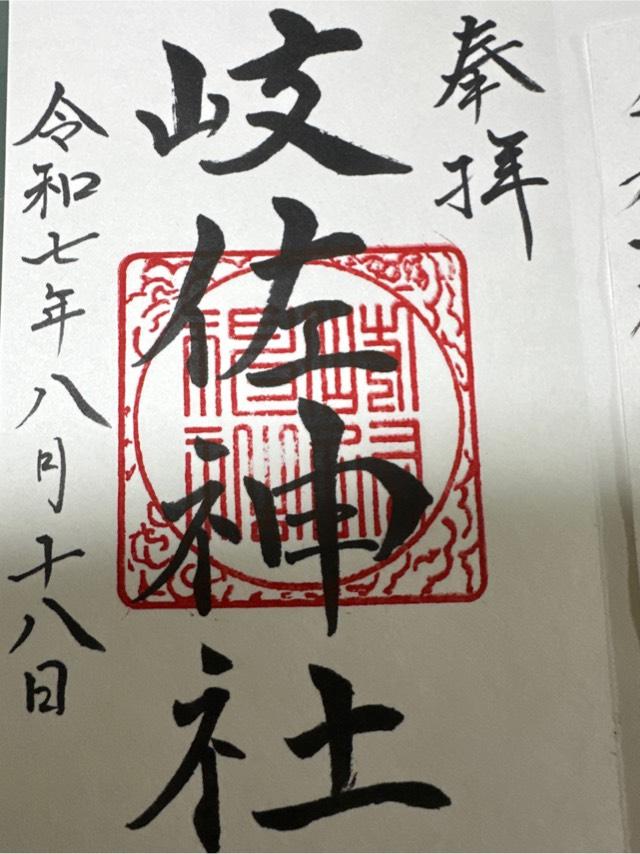 奉拝
岐佐神社
令和七年八月十八日